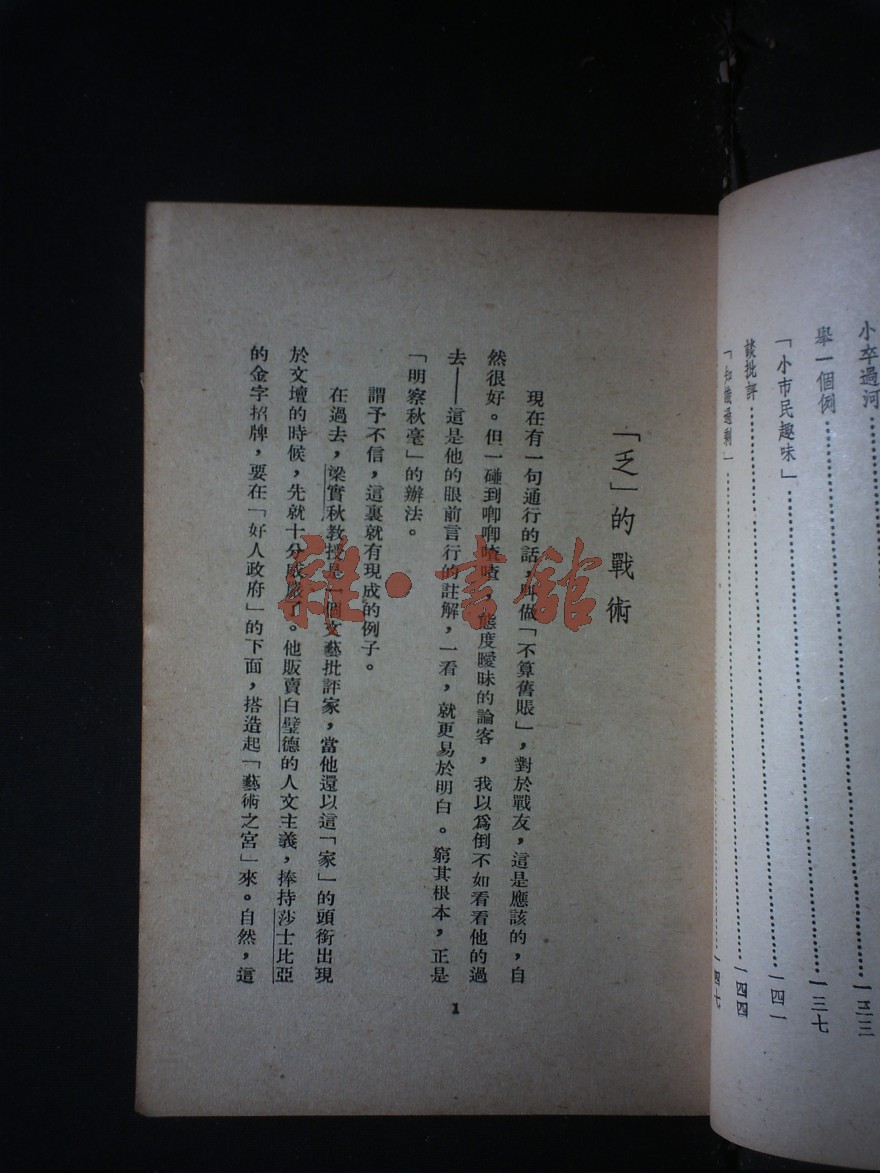 小卒過河…………一三三
舉一個例…………一三七
「小市民趣味」…………一四一
談批評…………一四四
「知識過剩」…………一四七
「乏」的戰術
現在有一句通行的話,叫做「不算舊賬」,對於戰友,這是應該的,自
然很好。但一碰到唧唧喳喳,態度曖昧的論客,我以爲倒不如看看他的過
去——這是他的眼前言行的註解,一看,就更易於明白。窮其根本,正是
「明察秋毫」的辦法。
謂予不信,這裏就有現成的例子。
在過去,梁實秋教授是一個文藝批評家,當他還以這「家」的頭銜出現
於文壇的時候,先就十分威嚴了。他販賣白璧德的人文主義,捧持莎士比亞
的金字招牌,要在「好人政府」的下面,搭造起「藝術之宮」來。自然,這
1
雜·書館